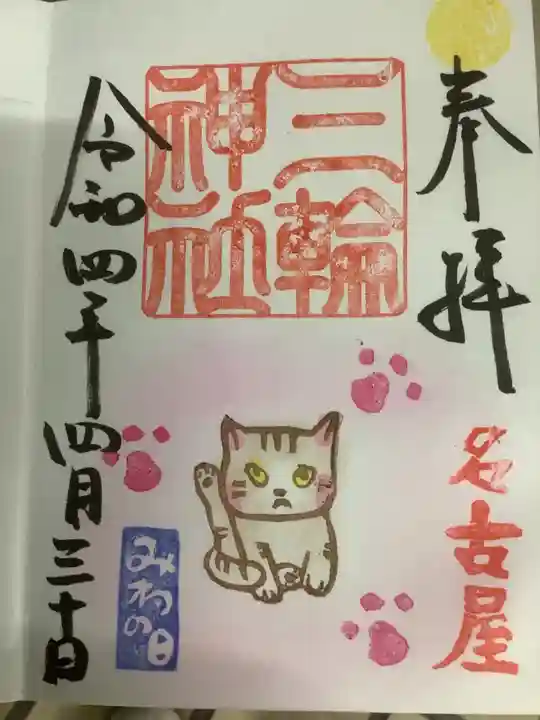 奉拝
名古屋
三輪
神社
みわの日
令和四年四月三十日